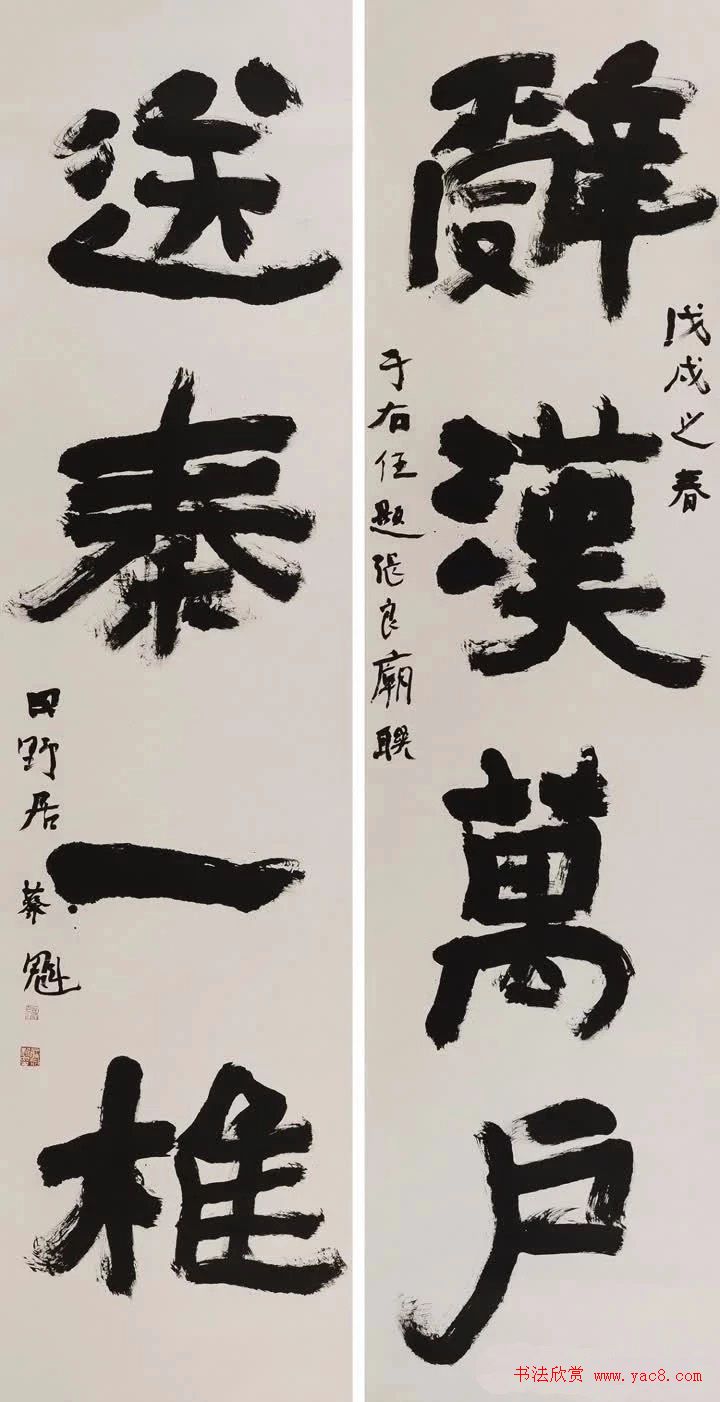 戊戌之春
辭漢萬户
于右任題張良廟聯
送秦一椎
田野居 蔡魁
书法欣赏 www.yac8.com